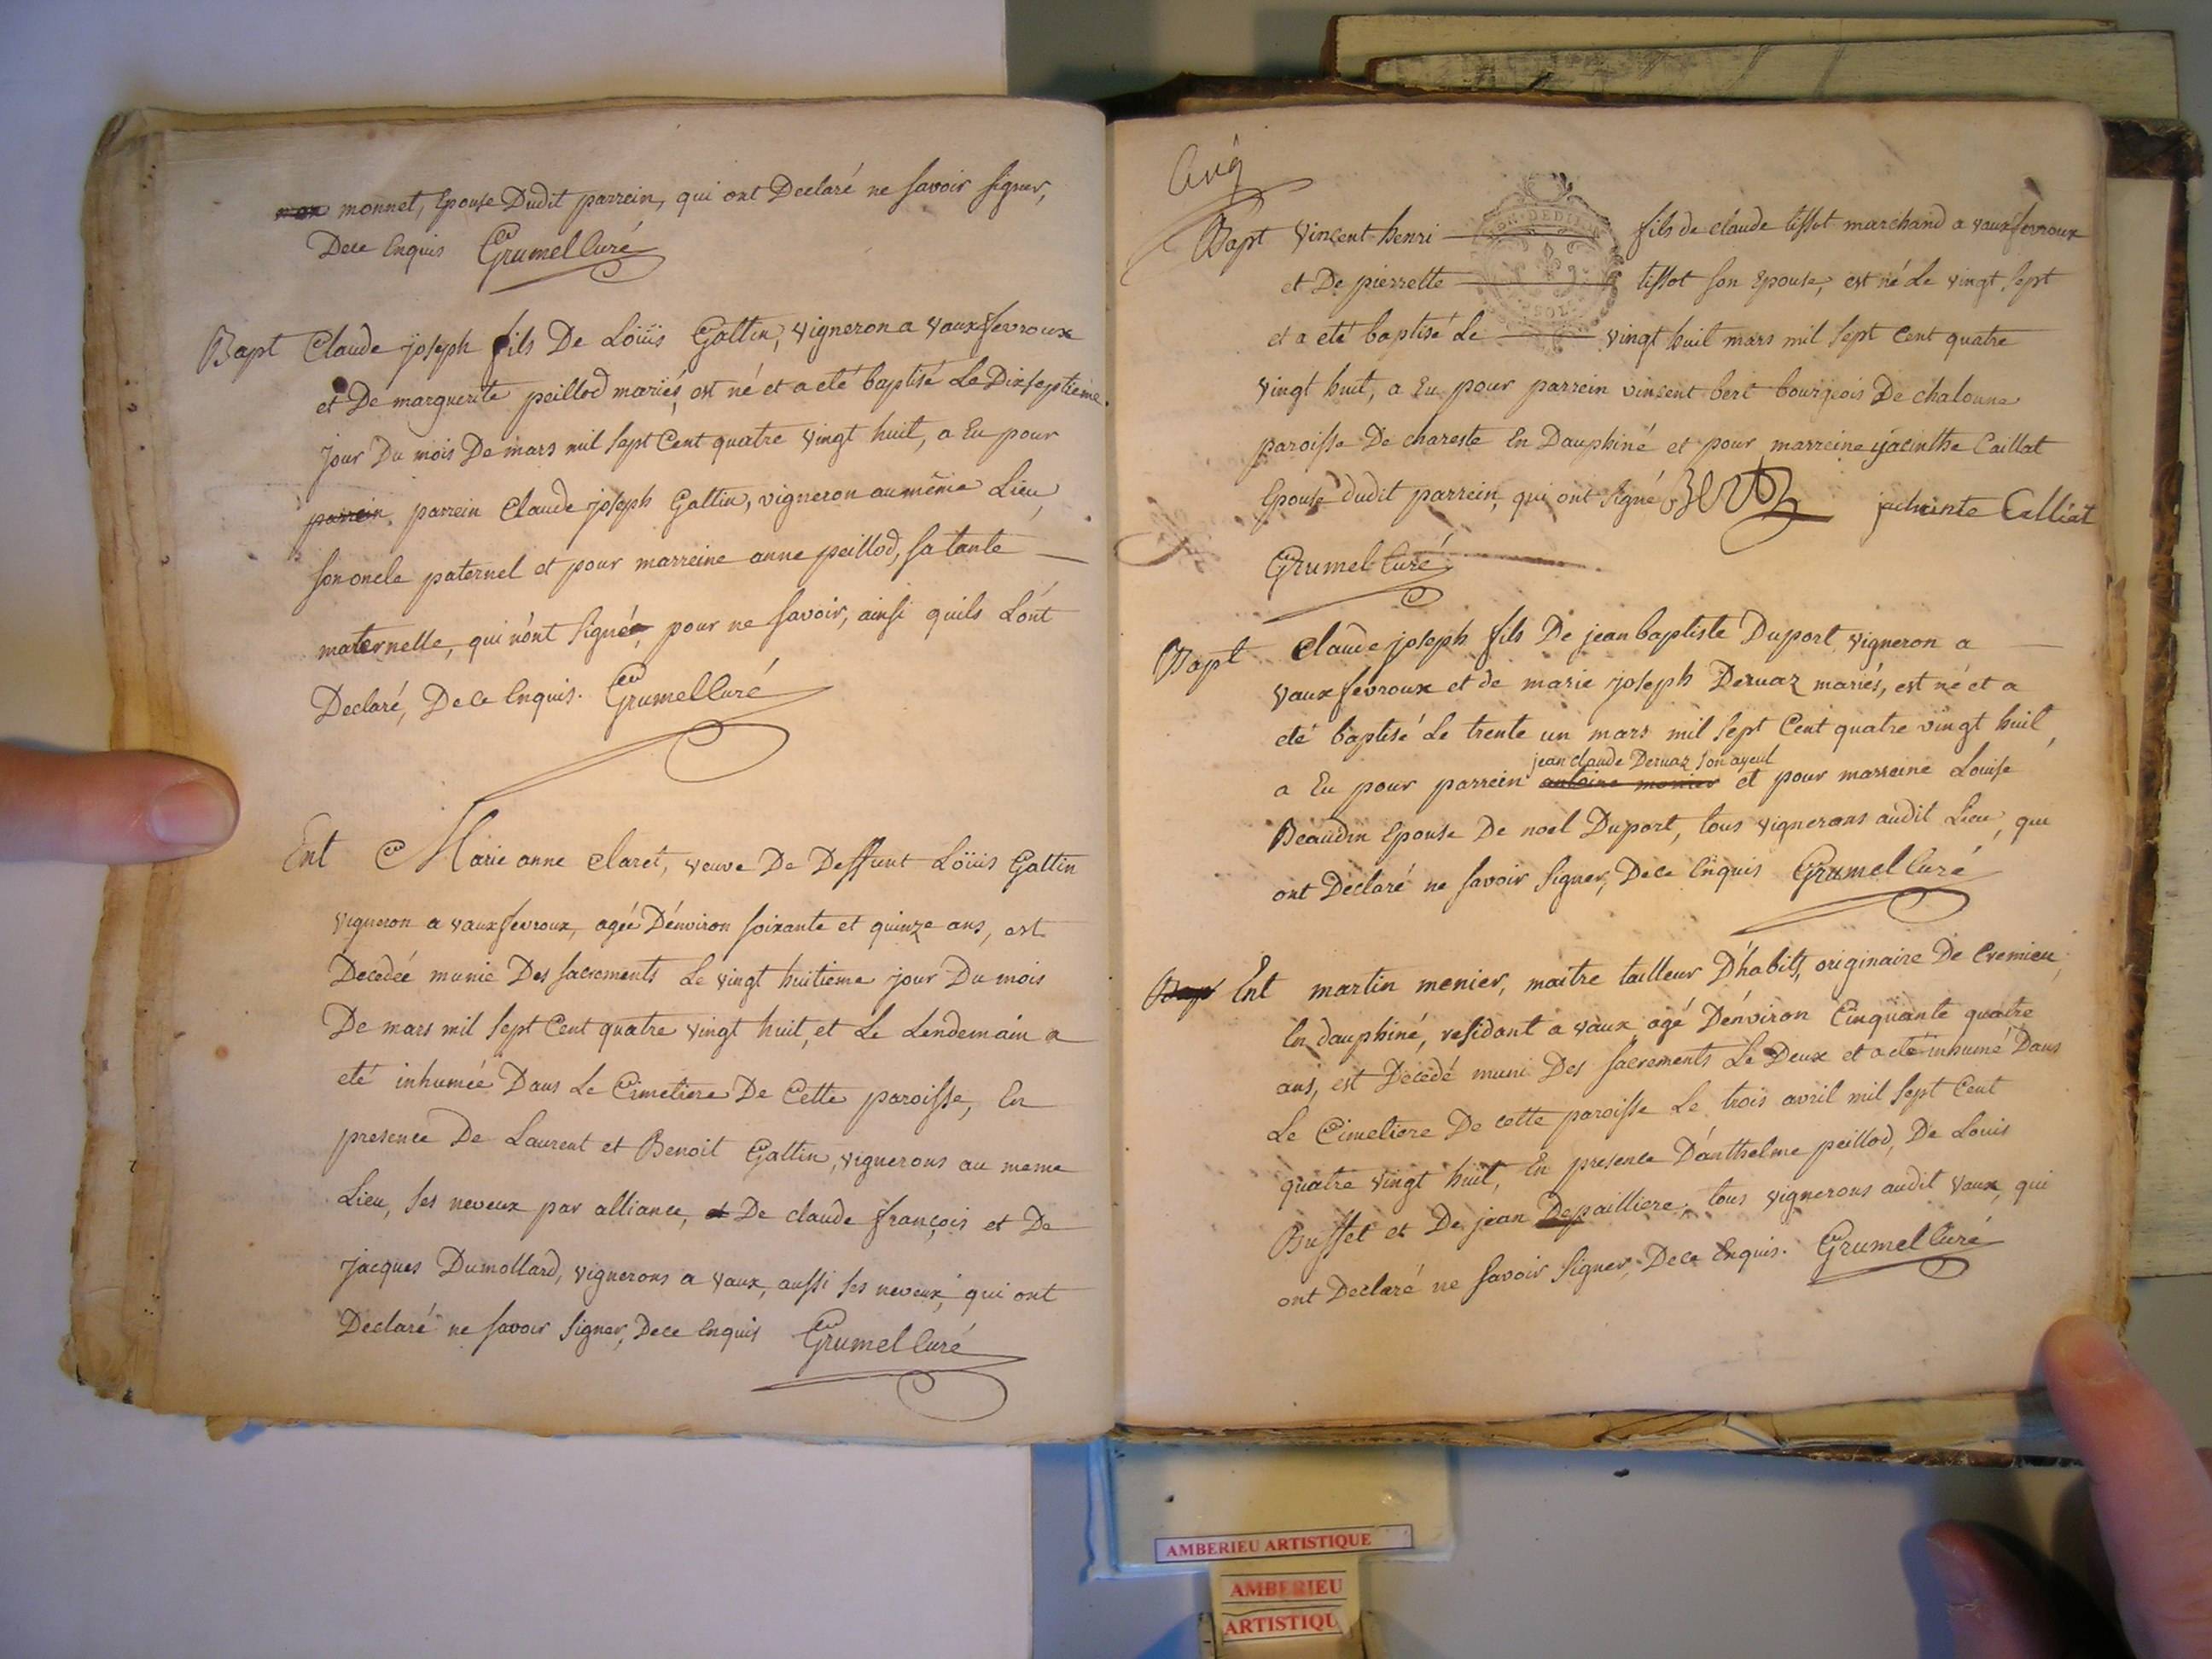 monnet, Epouse Dudit parrein, qui ont Declaré ne savoir signer,
Dece Enquis Grumel Curé
Bapt Claude joseph fils De Loüis Gattin, vigneron a vauxfevroux
et De marguerite peillod mariés, est né et a eté baptisé Le Dixseptieme
jour Du mois De mars mil sept Cent quatre vingt huit, a Eu pour
parrein parrein Claude joseph Gattin, vigneron au même Lieu,
son oncle paternel et pour marreine anne peillod, sa tante
maternelle, qui n'ont signé, pour ne savoir, ainsi quils L'ont
Declaré, De ce Enquis. Grumel Curé
Ent Marie anne Claret, veuve De Deffunt Loüis Gattin
vigneron a vauxfevroux, agée D'environ soixante et quinze ans, est
Decedée munie Des sacrements Le vingt huitieme jour Du mois
De mars mil sept Cent quatre vingt huit, et Le Lendemain a
eté inhumée Dans Le Cimetiere De Cette paroisse, En
presence De Laurent et Benoit Gattin, vignerons au meme
Lieu, ses neveux par alliance, et De claude françois et De
jacques Dumollard, vignerons a vaux, aussi ses neveux, qui ont
Declaré ne savoir signer, Dece Enquis Grumel Curé
Cinq
Bapt vincent henri fils de claude tissot marchand a vauxfevroux
et De pierrette tissot son Epouse, est né Le vingt sept
et a eté baptisé Le vingt huit mars mil sept Cent quatre
vingt huit, a Eu pour parrein vincent bert bourgeois De chalonne
paroisse De chareste En Dauphiné et pour marreine jacinthe Caillat
Epouse dudit parrein, qui ont signé Bert jachinte Calliat
Grumel Curé
Bapt Claude joseph fils De jean baptiste Duport vigneron a
vauxfevroux et de marie joseph Dervaz mariés, est né et a
eté baptisé Le trente un mars mil sept Cent quatre vingt huit,
jean claude Dervaz son ayeul
a Eu pour parrein antoine monier et pour marreine Louise
Beaudin Epouse De noël Duport, tous vignerons audit Lieu, qui
ont Declaré ne savoir signer, Dece Enquis Grumel Curé
Bap Ent martin menier, maitre tailleur D'habits, originaire De Cremieu,
En dauphiné, residant a vaux agé D'environ Cinquante quatre
ans, est Decedé muni Des sacrements Le Deux et a eté inhumé Dans
Le Cimetiere De cette paroisse Le trois avril mil sept Cent
quatre vingt huit, En presence D'anthelme peillod, De Louis
Buffet et De jean Depailliere, tous vignerons audit vaux, qui
ont Declaré ne savoir signer, Dece Enquis. Grumel Curé
AMBERIEU ARTISTIQUE
AMBERIEU
ARTISTIQU